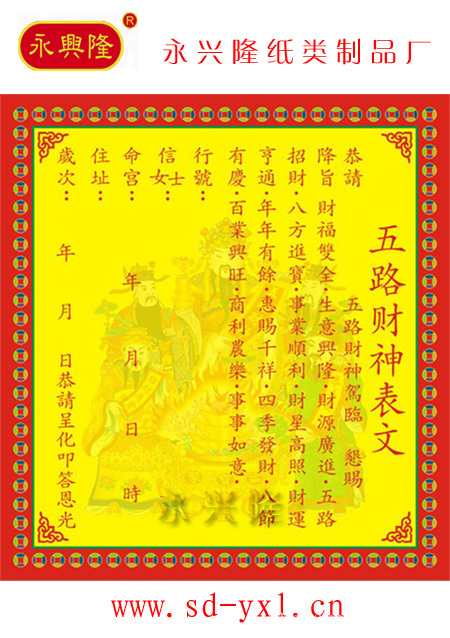 永興隆
R
永兴隆纸类制品厂
五路财神表文
恭請 五路財神駕臨 懇賜
降旨·財福雙全·生意興隆·財源廣進·五路
招財·八方進寶·事業順利·財星高照·財運
亨通·年年有餘·惠賜千祥·四季發財·八節
有慶·百業興旺·商利農樂·事事如意·
行號:
信士女:
命宫: 年 月 日 時
住址:
歲次: 年 月 日恭請呈化叩答恩光
永兴隆
www.sd-yxl.cn